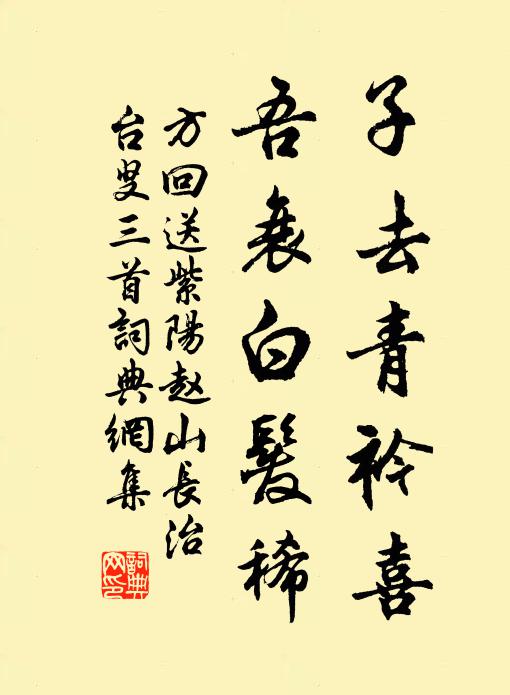 子去青衿喜
吾衰白髮稀
方回送紫陽赵山長治
台叟三首詞典網集
詞典
网印